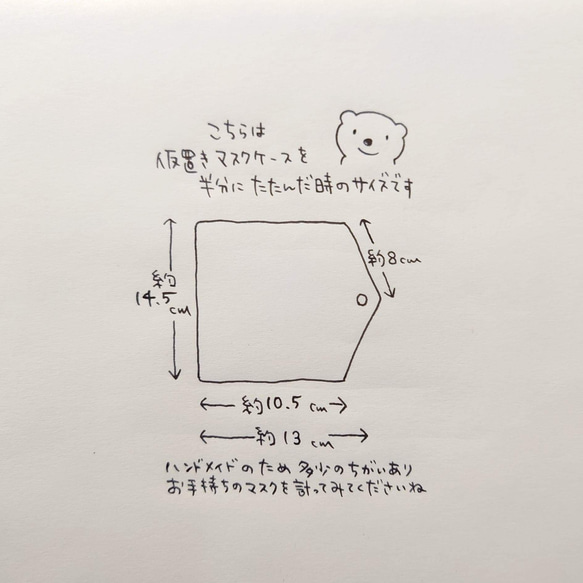 こちらは
仮置きマスクケースを
半分にたたんだ時のサイズです
約8cm
約
14.5
cm
約10.5 cm
約13 cm
ハンドメイドのため 多少のちがいあり
お手持ちのマスクを計ってみてくださいね